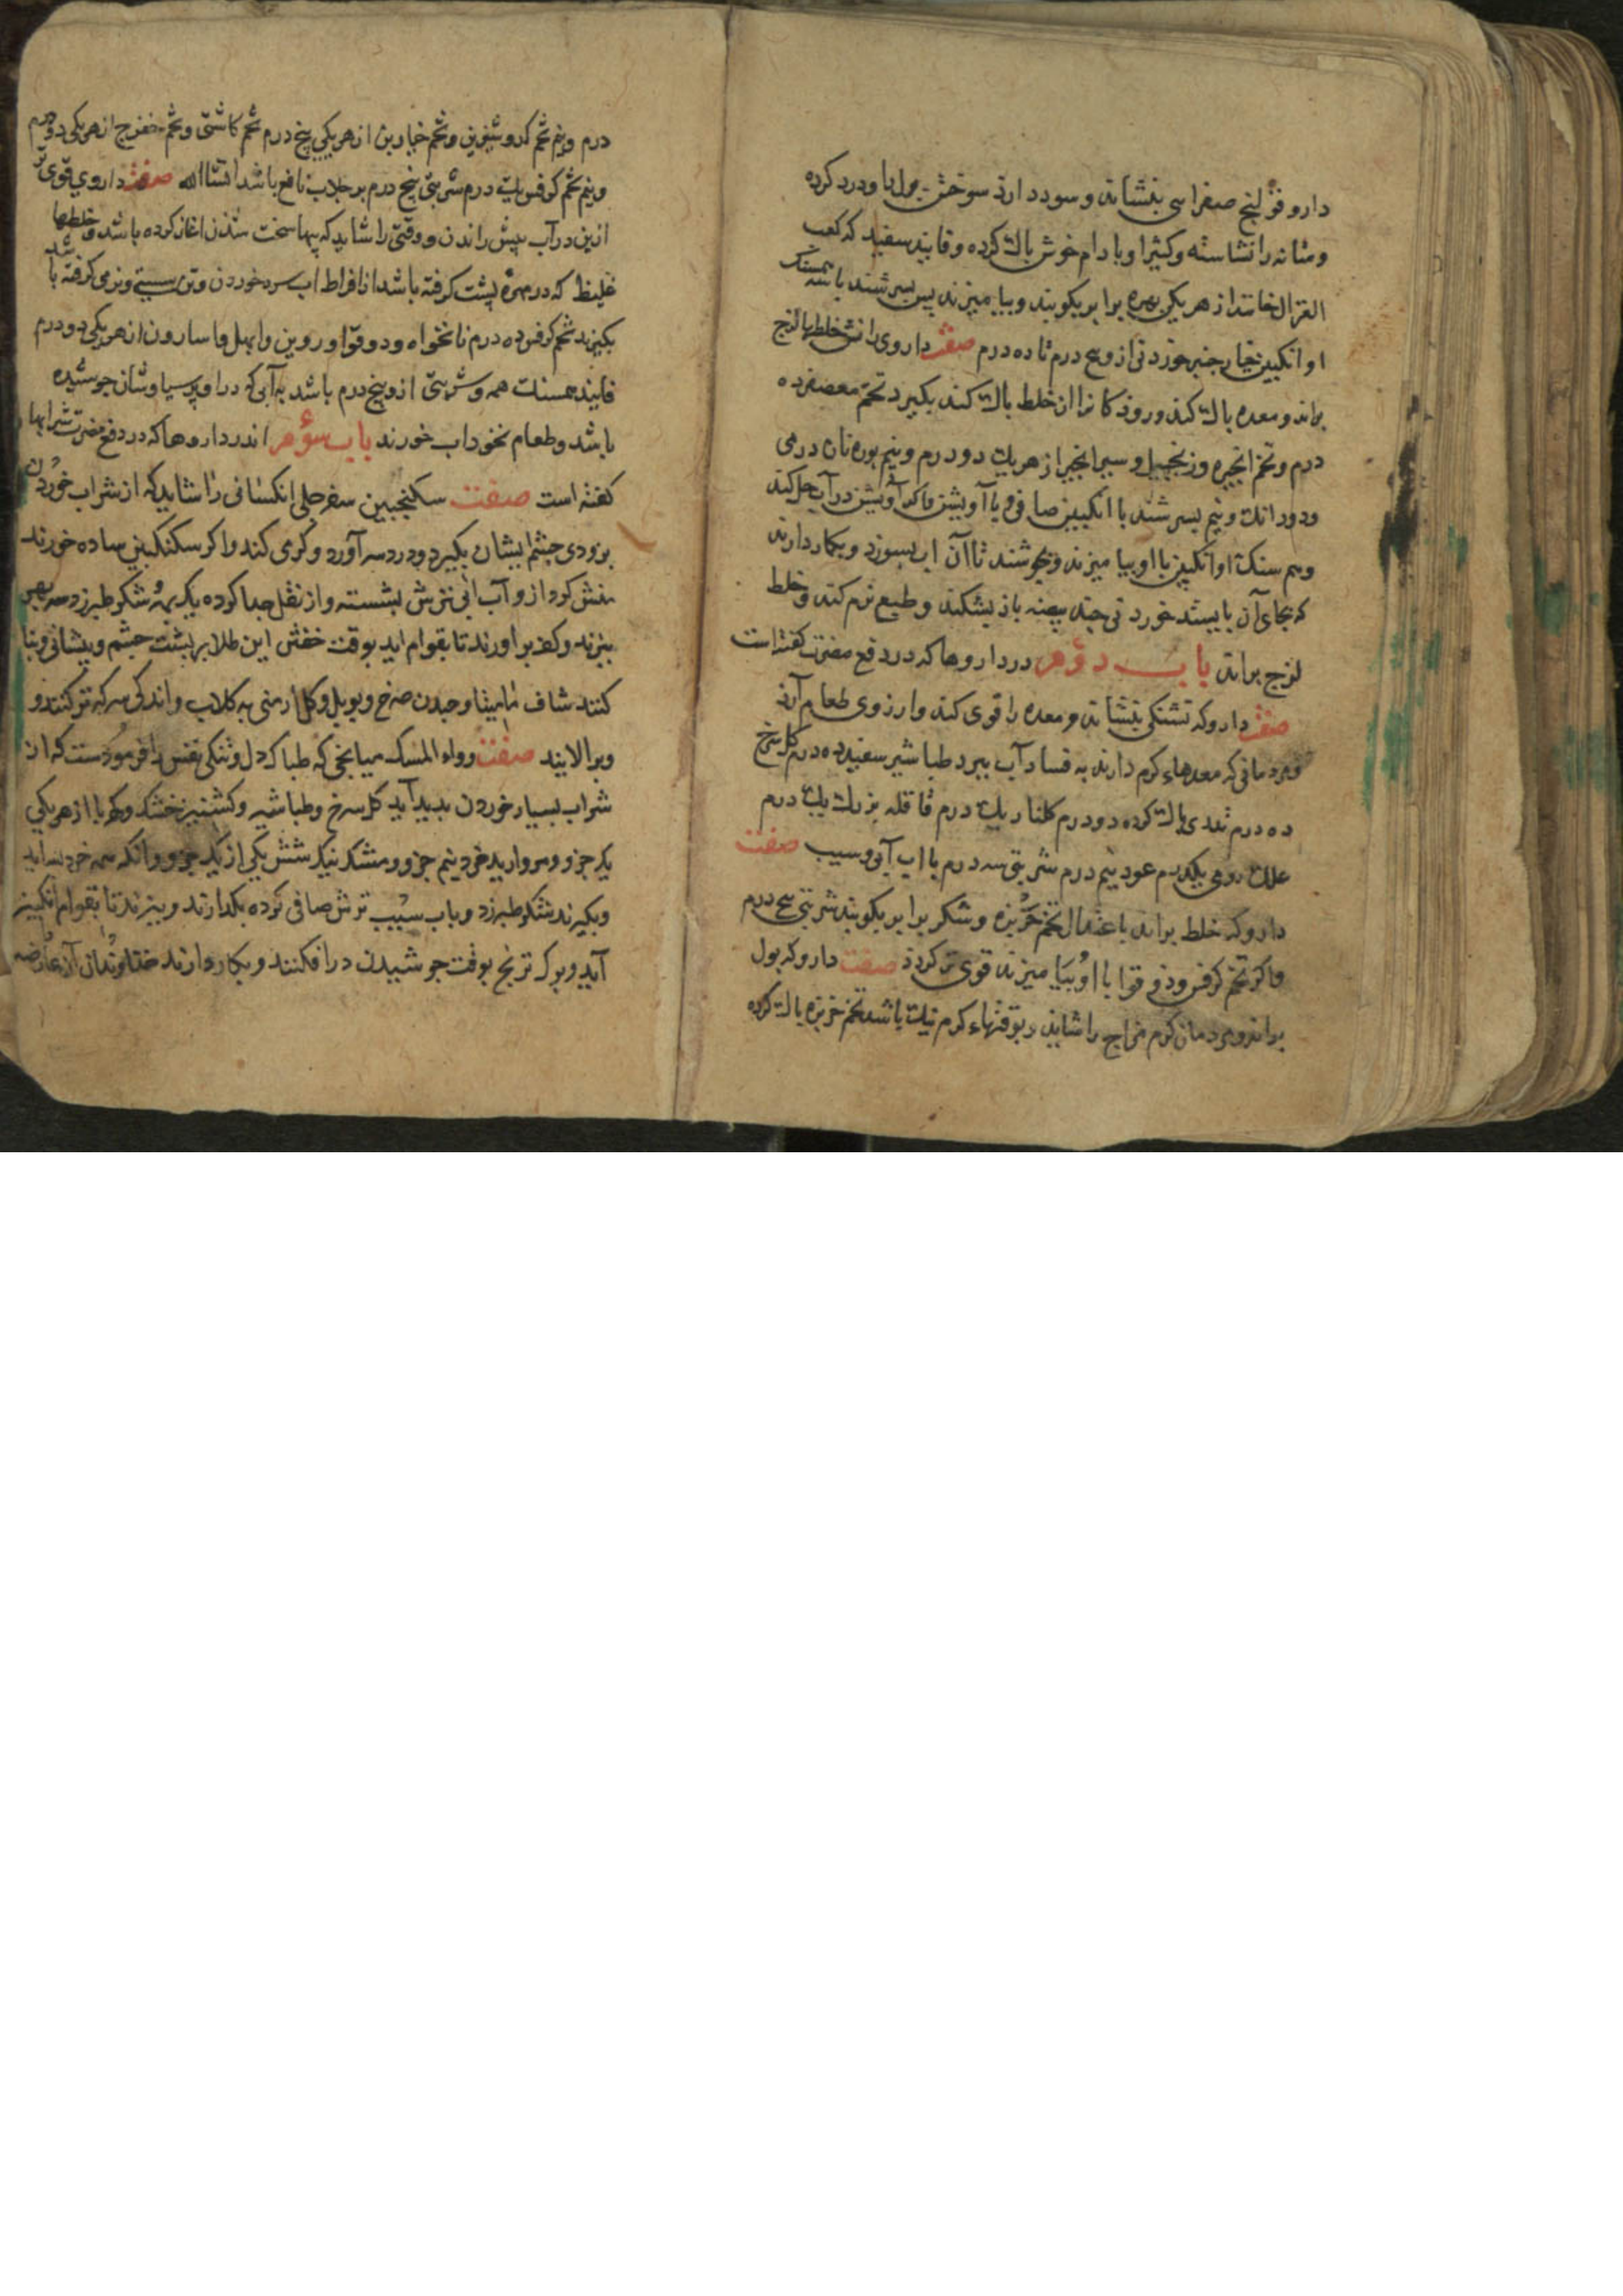 دارو قولنج صفرایی بنشاند و سود دارد سوختن بول را و درد کرده
و مثانه را نشاسته و کثیرا و بادام خوش پاک کرده و فانید سفید که کعب
الغزال خوانند از هر یکی بهره برابر بکوبند و بیامیزند پس بسرشند با همسنک
او انکبین خیار چنبر خوردنی از و پنج درم تا ده درم صفت داروی رانش خلطها لزج
براند و معده پاک کند و روذکانرا از خلط پاک کند بکیرد تخم معصفر ده
درم و تخم انجیره و زنجبیل و سیر انجیر از هر یک دو درم و نیم بوره نان درمی
و دو دانک و نیم بسرشند با انکبین صافی و با آویشن ماکو آویشن در آب حل کند
و هم سنک او انکبین با او بیامیزند و بجوشند تا آن آب بسوزد و بکار دارند
که بجای آن بایستد خوردنی چند بیضه باز بشکند و طبع نرم کند و خلط
لزج براند باب دوم در داروها که در دفع مضرت کفته است
صفت دارو که تشنکی بنشاند و معده را قوی کند و ارزوی طعام آرد
و مردمانی که معدهاء کرم دارند به فساد آب ببرد طباشیر سفید ده درم کل سرخ
ده درم ثدی پاک کرده دو درم کلنار یک درم قاقله بزرک یک درم
علک رومی یکدرم عود نیم درم شربتی سه درم با اب آبی و سیب صفت
دارو که خلط براند باعتدال تخم خربزه و شکر برابر بکوبند شربتی پنج درم
و اکر تخم کرفس و دوقوا با او بیامیزند قوی تر کردد صفت دارو که بول
براند و مردمان کرم مزاج را شاید و بوقتهاء کرم نیک باشد تخم خربزه پاک کرده
درم و نیم تخم کدو شیرین و تخم خیارین از هر یکی پنج درم تخم کاشنی و تخم خفرج از هر یکی دو درم
و نیم تخم کرفس یک درم شربتی پنج درم بر جلاب نافع باشد انشاالله صفت داروی قوی تر
ازین در آب پیش راندن و وقتی را شاید که پیها سخت شدن اغاز کرده باشد و خلطها
غلیظ که در مهره پشت کرفته باشد از افراط اب سرد خوردن و تن سستی و نرمی کرفته باشد
بکیرند تخم کرفس ده درم نانخواه و دوقوا و روین و ابهل و اسارون از هر یکی دو درم
فانید همسنک همه و شربتی از و پنج درم باشد به آبی که در او پرسیاوشان جوشیده
باشد و طعام نخوداب خورند باب سوم اندر داروها که در دفع مضرت شرابها
کفته است صفت سکنجبین سفرجلی انکسانی را شاید که از شراب خوردن
بزودی چشم ایشان بکیرد و درد سر آورد و کرمی کند و اکر سکنکبین ساده خورند
منش کرداند و آب آبی ترش بشسته و از ثقل جدا کرده یک بهره شکر طبرزد سه بهر
بپزند و کف براورند تا بقوام اید بوقت خفتن این طلا بر پشت چشم و پیشانی و بنا
کنند شاف مامیثا و چندن سرخ و پوپل و کل ارمنی به کلاب و اندکی سرکه تر کنند و
و برالایند صفت دواء المسک میانجی که طباکه دل و تنکی نفس را فرموذست که از
شراب بسیار خوردن بدید آید کل سرخ و طباشیر و کشنیز خشک و کهربا از هر یکی
یک جزو و مروارید خرد نیم جزو و مشک نیک شش یکی از یک جزو و انکه همه خرد بساید
و بکیرند شکر طبرزد و باب سیب ترش صافی کرده بکدارند و بپزند تا بقوام انکبین
آید و برک ترنج بوقت جوشیدن درافکنند و بکار دارند خداوندان آن عارضه